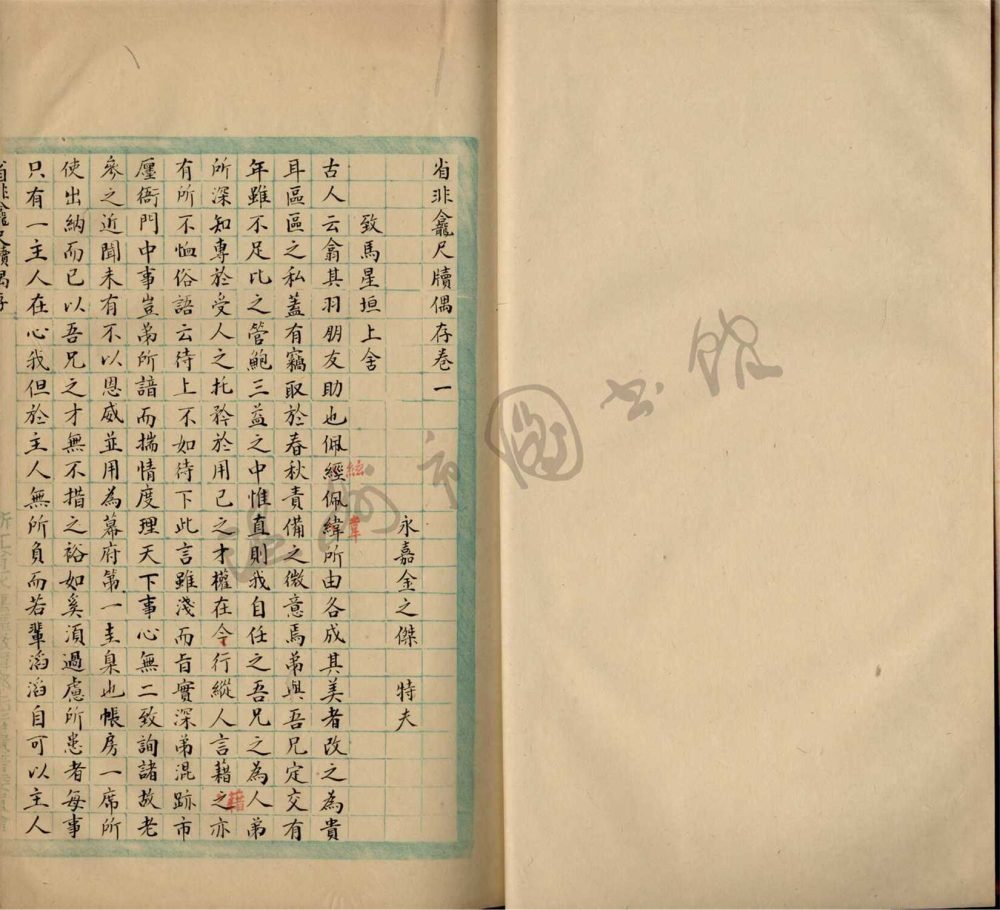 省非龕尺牘偶存卷一
永嘉金之傑 特夫
致馬星垣上舍
古人云翕其羽朋友助也佩經佩緯所由各成其美者改之為貴
絃 韋
耳區區之私蓋有竊取於春秋責備之微意焉弟與吾兄定交有
年雖不足比之管鮑三益之中惟直則我自任之吾兄之為人弟
所深知專於受人之托矜於用己之才權在令行縱人言藉之亦
藉
有所不恤俗語云待上不如待下此言雖淺而旨實深弟混跡市
廛衙門中事豈弟所諳而揣情度理天下事心無二致詢諸故老
參之近聞未有不以恩威並用為幕府第一圭臬也帳房一席所
使出納而已以吾兄之才無不措之裕如奚須過慮所患者每事
只有一主人在心我但於主人無所負而若輩滔滔自可以主人
省非龕尺牘偶存
溫州市圖書館